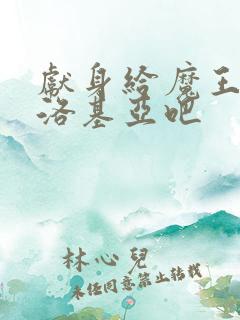 獻身給魔王
洛基亞吧
林心兒
未經同意禁止轉載